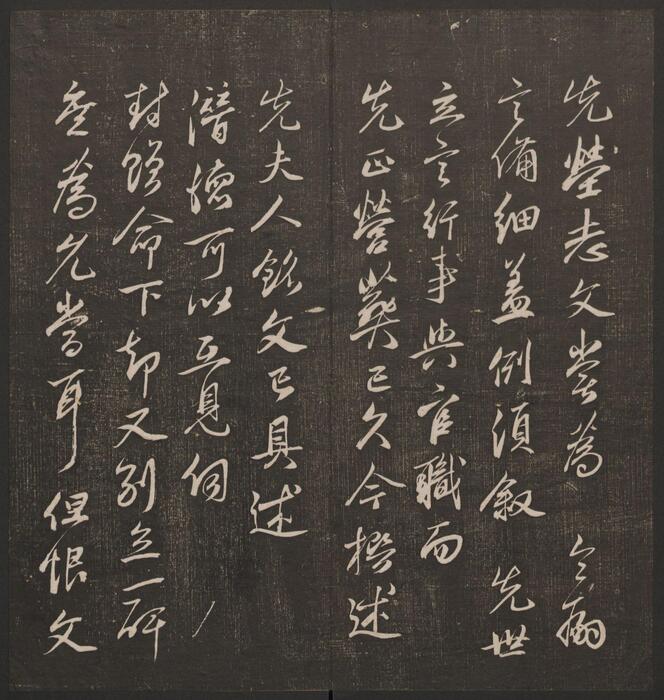 先塋志文當為 令嗣
言備細蓋例須叙 先世
立言行事與官職而
先正營葬已久今撰述
先夫人銘文已具述
潛德可以互見伺
封贈命下却又別立一碑
為允當耳但恨文